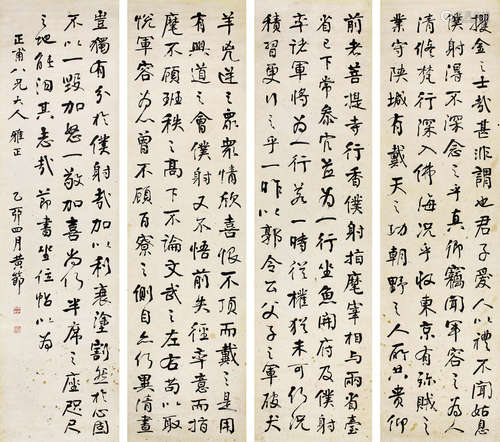 攫金之士哉甚非謂也君子愛人以禮不聞姑息
僕射得不深念之乎真卿竊聞軍容之為人
清修梵行深入佛海況乎收東京有殄賊之
業守陝城有戴天之功朝野之人所共貴仰
前者菩提寺行香僕射指麾宰相與兩省臺
省已下常參官並為一行坐魚開府及僕射
率諸軍將為一行若一時從權猶未可何況
積習更行之乎一昨以郭令公父子之軍破犬
羊兇逆之眾眾情欣喜恨不頂而戴之是用
有興道之會僕射又不悟前失徑率意而指
麾不顧班秩之高下不論文武之左右苟以取
悅軍容為心曾不顧百寮之側目亦何異清晝
豈獨有分於僕射哉加以利衰塗割然於心固
不以一毀加怒一敬加喜尚何半席之座咫尺
之地能汩其志哉 節書坐位帖以為
正甫八兄大人雅正 乙卯四月黃節